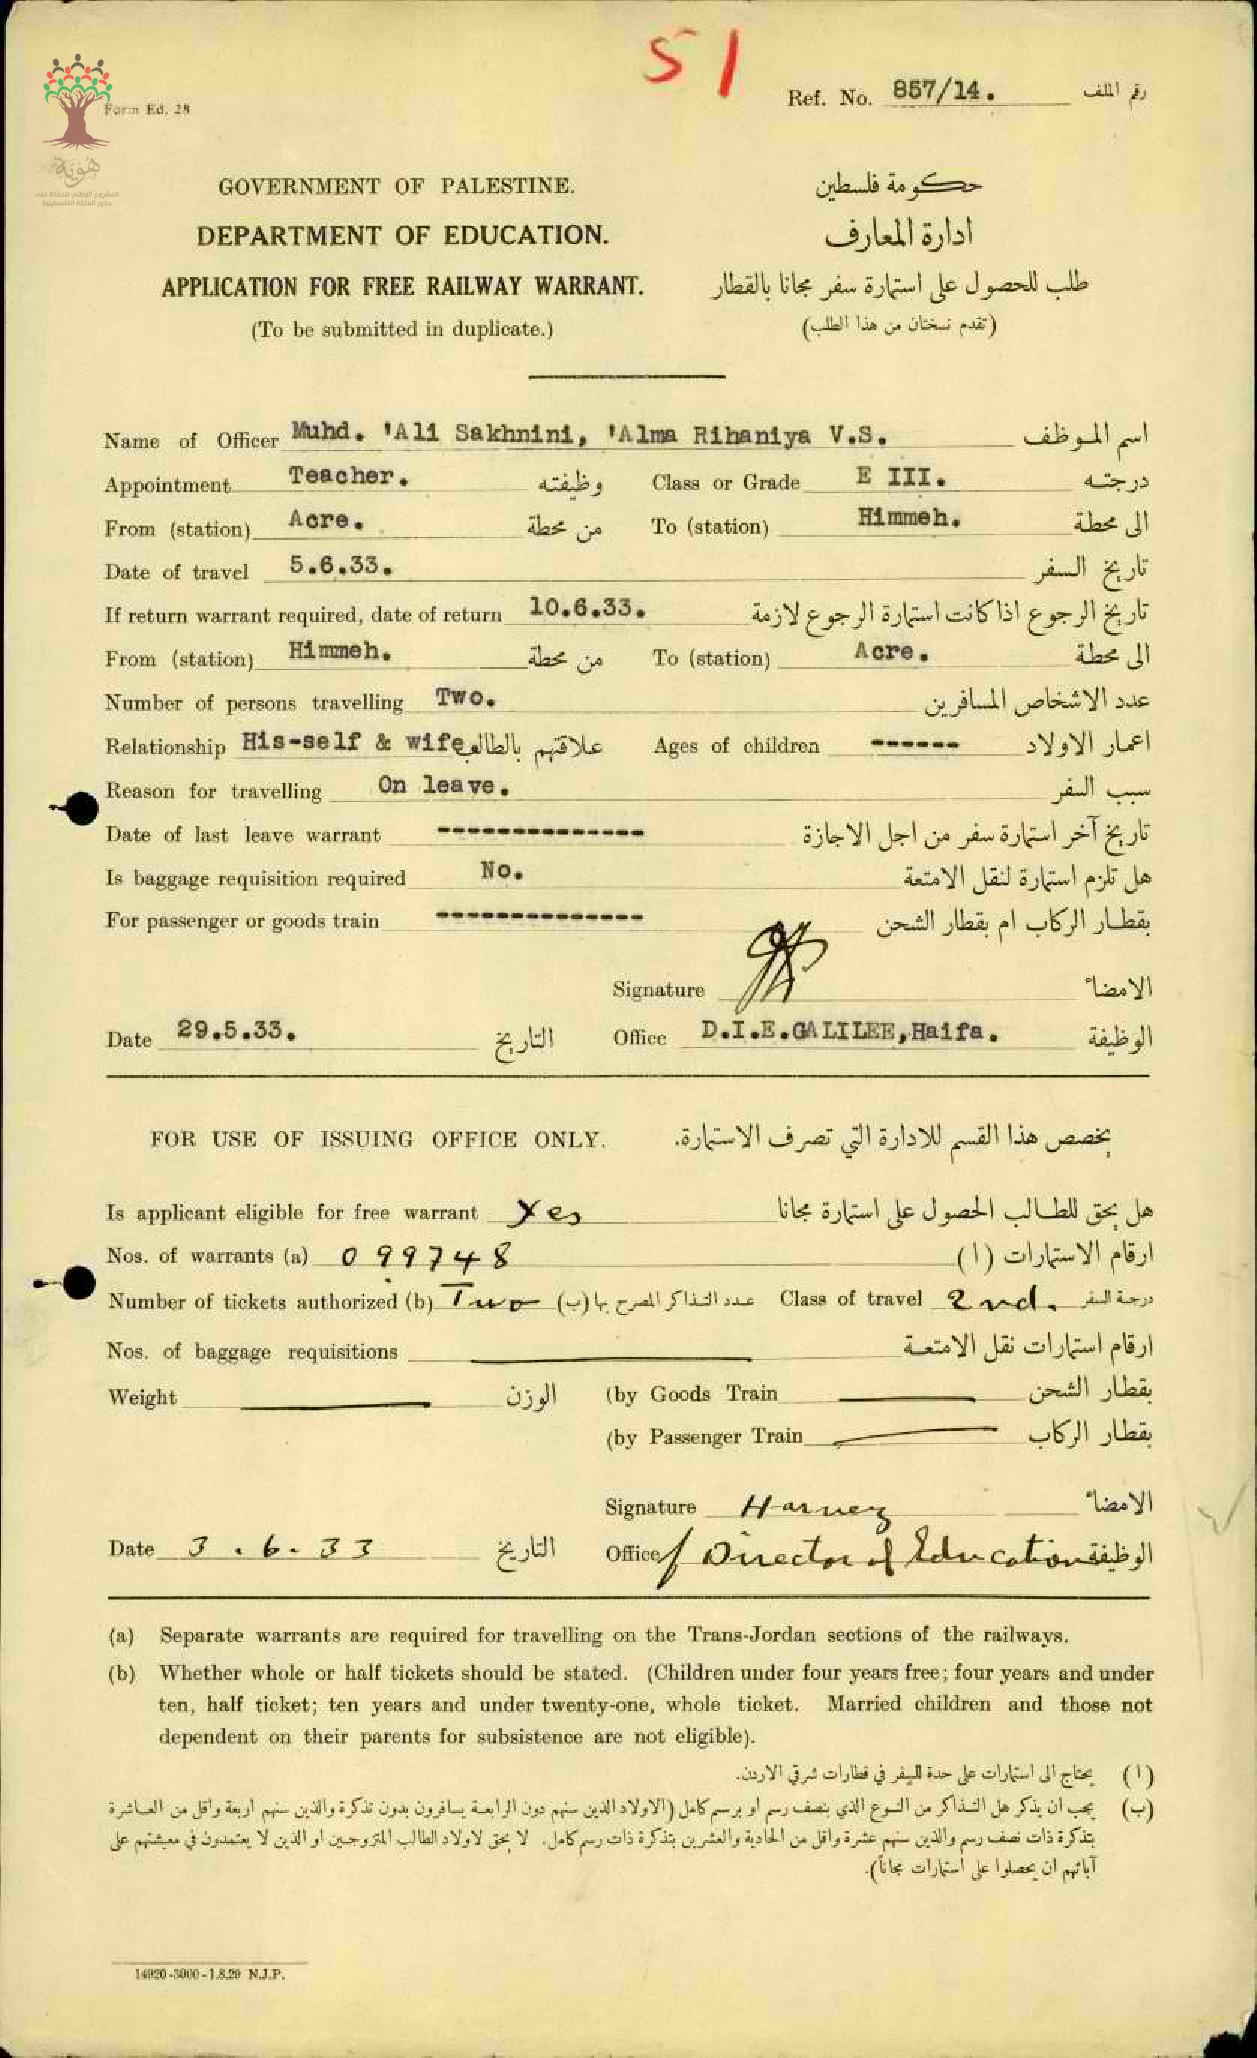 51
Form Ed. 28
Ref. No. 857/14. رقم الملف
هوية
المشروع الوطني للحفاظ على
جذور العائلة الفلسطينية
GOVERNMENT OF PALESTINE. حكومة فلسطين
DEPARTMENT OF EDUCATION. ادارة المعارف
APPLICATION FOR FREE RAILWAY WARRANT. طلب للحصول على استمارة سفر مجانا بالقطار
(To be submitted in duplicate.) (تقدم نسختان من هذا الطلب)
Name of Officer Muhd. 'Ali Sakhnini, 'Alma Rihaniya V.S. اسم الموظف
Appointment Teacher. وظيفته Class or Grade E III. درجته
From (station) Acre. من محطة To (station) Himmeh. الى محطة
Date of travel 5.6.33. تاريخ السفر
If return warrant required, date of return 10.6.33. تاريخ الرجوع اذا كانت استمارة الرجوع لازمة
From (station) Himmeh. من محطة To (station) Acre. الى محطة
Number of persons travelling Two. عدد الاشخاص المسافرين
Relationship His-self & wife علاقتهم بالطالب Ages of children ------ اعمار الاولاد
Reason for travelling On leave. سبب السفر
Date of last leave warrant -------------- تاريخ آخر استمارة سفر من اجل الاجازة
Is baggage requisition required No. هل تلزم استمارة لنقل الامتعة
For passenger or goods train -------------- بقطار الركاب ام بقطار الشحن
Signature الامضاء
Date 29.5.33. التاريخ Office D.I.E.GALILEE,Haifa. الوظيفة
FOR USE OF ISSUING OFFICE ONLY. يخصص هذا القسم للادارة التي تصرف الاستمارة.
Is applicant eligible for free warrant Yes هل يحق للطالب الحصول على استمارة مجانا
Nos. of warrants (a) 099748 ارقام الاستمارات (ا)
Number of tickets authorized (b) Two عدد التذاكر المصرح بها (ب) Class of travel 2nd. درجة السفر
Nos. of baggage requisitions ارقام استمارات نقل الامتعة
Weight الوزن (by Goods Train بقطار الشحن
(by Passenger Train بقطار الركاب
Signature Harvey الامضاء
Date 3.6.33 التاريخ Office f/ Director of Education الوظيفة
(a) Separate warrants are required for travelling on the Trans-Jordan sections of the railways.
(b) Whether whole or half tickets should be stated. (Children under four years free; four years and under
ten, half ticket; ten years and under twenty-one, whole ticket. Married children and those not
dependent on their parents for subsistence are not eligible).
(ا) يحتاج الى استمارات على حدة للسفر في قطارات شرقي الاردن.
(ب) يجب ان يذكر هل التذاكر من النوع الذي بنصف رسم او برسم كامل (الاولاد الذين سنهم دون الرابعة يسافرون بدون تذكرة والذين سنهم اربعة واقل من العاشرة
بتذكرة ذات نصف رسم والذين سنهم عشرة واقل من الحادية والعشرين بتذكرة ذات رسم كامل. لا يحق لاولاد الطالب المتزوجين او الذين لا يعتمدون في معيشتهم على
آبائهم ان يحصلوا على استمارات مجاناً).
14920-3000-1.8.29 N.J.P.